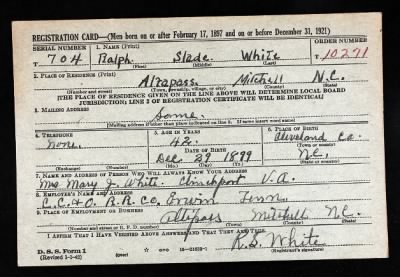 REGISTRATION CARD—(Men born on or after February 17, 1897 and on or before December 31, 1921)
SERIAL NUMBER 1. NAME (Print) ORDER NUMBER
T 704 Ralph Slade White T 10271
(First) (Middle) (Last)
2. PLACE OF RESIDENCE (Print)
Altapass, Mitchell N.C.
(Number and street) (Town, township, village, or city) (County) (State)
[THE PLACE OF RESIDENCE GIVEN ON THE LINE ABOVE WILL DETERMINE LOCAL BOARD
JURISDICTION; LINE 2 OF REGISTRATION CERTIFICATE WILL BE IDENTICAL]
3. MAILING ADDRESS
Same.
[Mailing address if other than place indicated on line 2. If same insert word same]
4. TELEPHONE 5. AGE IN YEARS 6. PLACE OF BIRTH
None. 42. Cleveland Co.
DATE OF BIRTH (Town or county)
Dec 29 1899 N.C.
(Exchange) (Number) (Mo.) (Day) (Yr.) (State or country)
7. NAME AND ADDRESS OF PERSON WHO WILL ALWAYS KNOW YOUR ADDRESS
Mrs Mary J. White. Clinchport V.A.
8. EMPLOYER'S NAME AND ADDRESS
C.C.&O. R.R. Co. Erwin Tenn.
9. PLACE OF EMPLOYMENT OR BUSINESS
Altapass Mitchell N.C.
(Number and street or R. F. D. number) (Town) (County) (State)
I AFFIRM THAT I HAVE VERIFIED ABOVE ANSWERS AND THAT THEY ARE TRUE.
D. S. S. Form 1
(Revised 1-1-42)
R. S. White
(Registrant's signature)